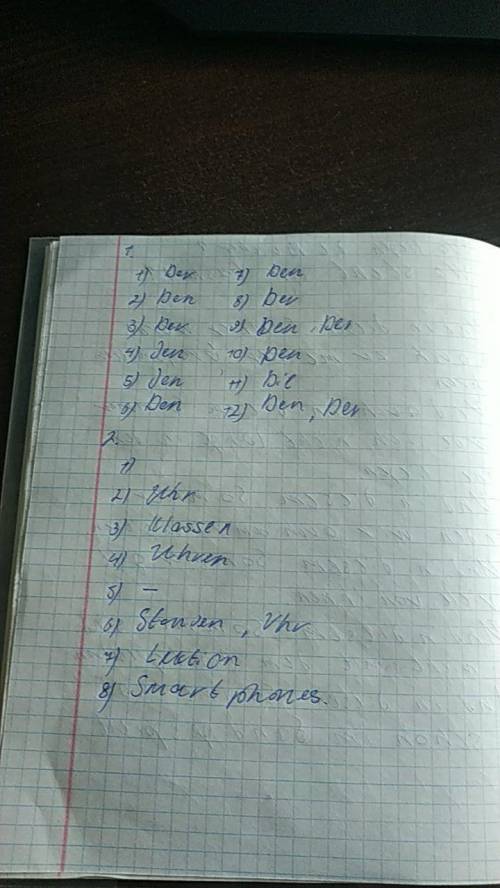 1.
1) Der 7) Den
2) Den 8) Der
3) Der 9) Den, Der
4) Den 10) Den
5) Den 11) Die
6) Den 12) Den, Der
2.
1)
2) Uhr
3) Klassen
4) Uhren
5) —
6) Stunden, Uhr
7) Lektion
8) Smartphones.